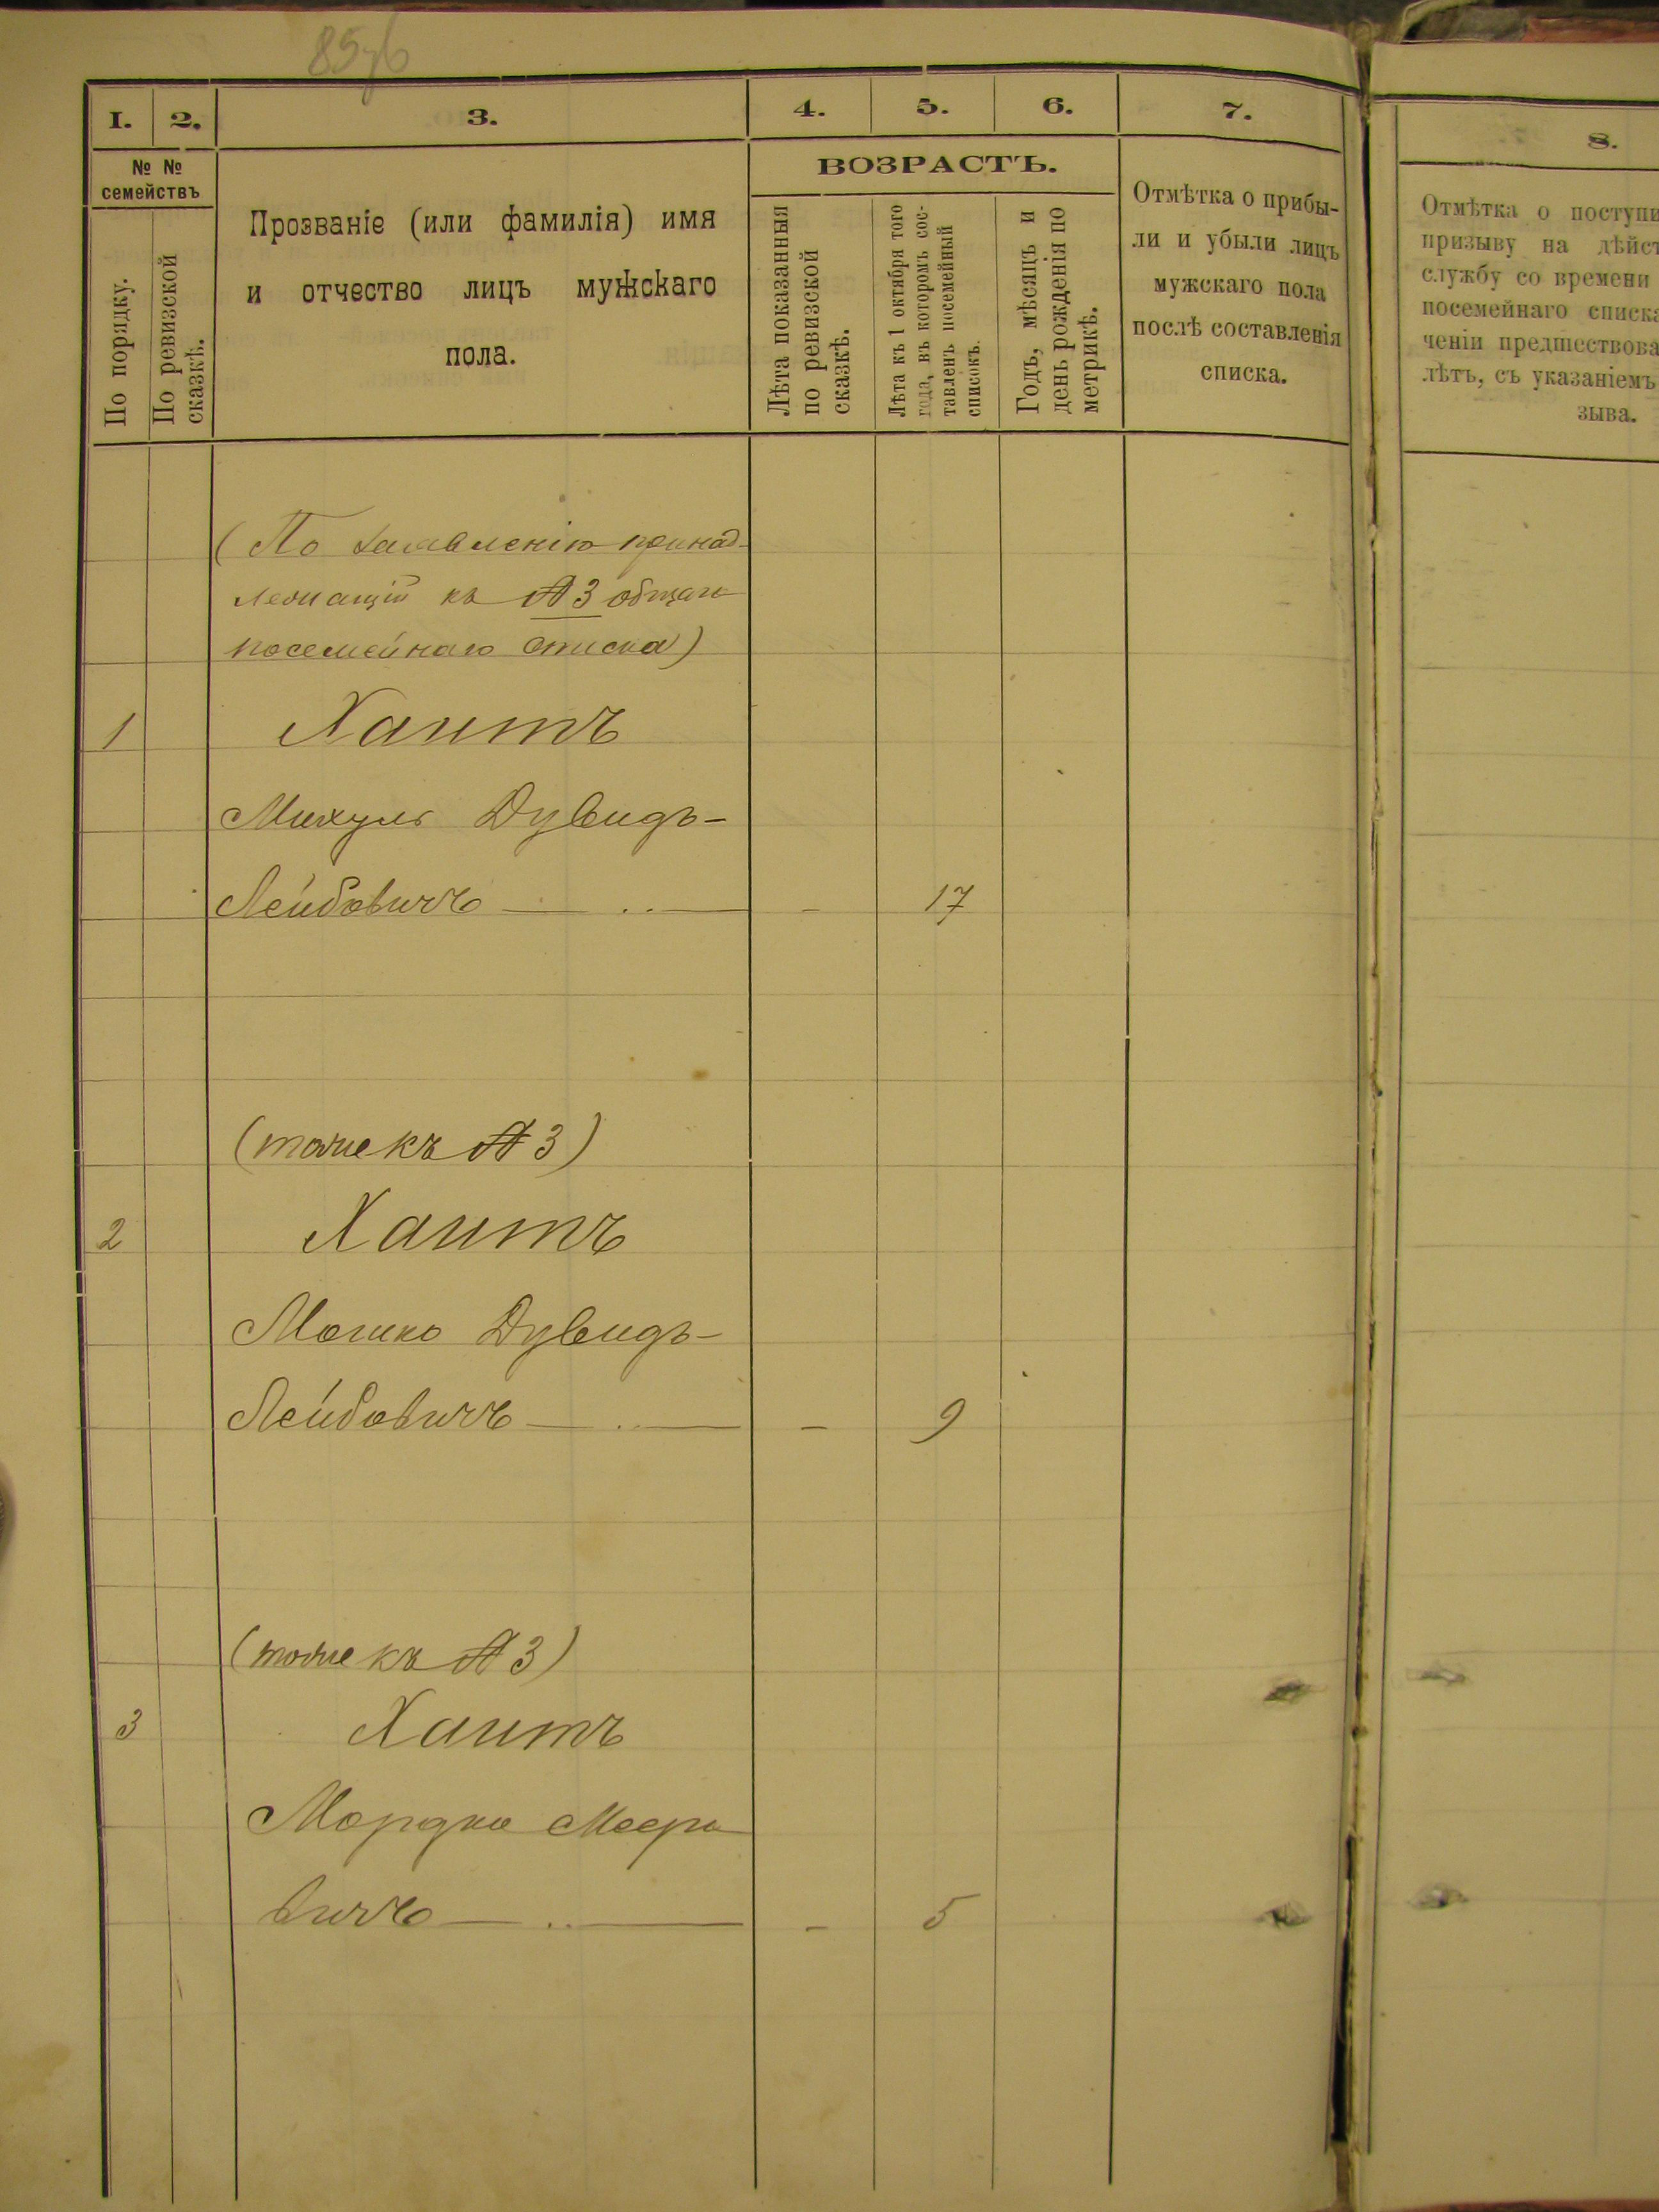 85об
1. 2. 3. 4. 5. 6. 7.
№ №
семействъ
По порядку.
По ревизской
сказкѣ.
Прозваніе (или фамилія) имя
и отчество лицъ мужскаго
пола.
ВОЗРАСТЪ.
Лѣта показанныя
по ревизской
сказкѣ.
Лѣта къ 1 октября того
года, въ которомъ сос-
тавленъ посемейный
списокъ.
Годъ, мѣсяцъ и
день рожденія по
метрикѣ.
Отмѣтка о прибы-
ли и убыли лицъ
мужскаго пола
послѣ составленія
списка.
8.
Отмѣтка о поступи
призыву на дѣйст
службу со времени
посемейнаго списка
ченіи предшествова
лѣтъ, съ указаніемъ
зыва.
(По заявленію принад-
лежащій къ № 3 общаго
посемейнаго списка)
1 Хаитъ
Михуль Дувидъ-
Лейбовичъ — 17
(тоже къ № 3)
2 Хаитъ
Мошко Дувидъ-
Лейбовичъ — 9
(тоже къ № 3)
3 Хаитъ
Мордко Мееро
вичъ — 5